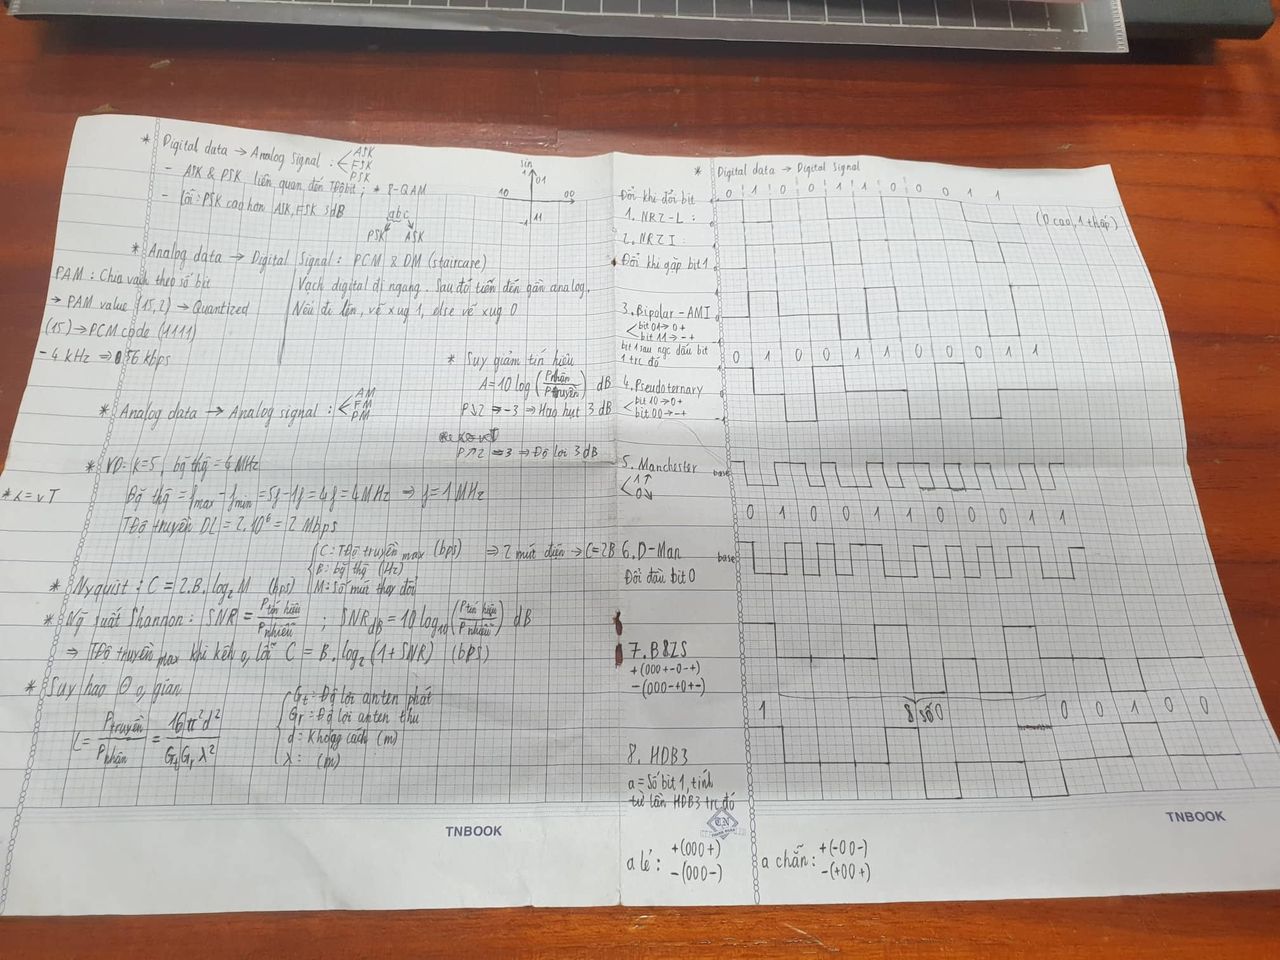 * Digital data → Analog signal : ASK
FSK
PSK
- ASK & PSK liên quan đến TĐộ bit ; * 8-QAM
- Lỗi : PSK cao hơn ASK, FSK 3dB
abc
PSK ASK
sin
1
01
10 00
11
-1
* Analog data → Digital Signal : PCM & DM (staircare)
PAM : Chia vạch theo số bit
→ PAM value (15,2) → Quantized
(15) → PCM code (1111)
- 4 kHz ⇒ 56 kbps
Vạch digital đi ngang. Sau đó tiến đến gần analog.
Nếu đi lên, vẽ xug 1, else vẽ xug 0
* Suy giảm tín hiệu
A = 10 log (P nhận / P truyền) dB
P↓2 ⇒ -3 ⇒ Hao hụt 3 dB
P↗2 ⇒ 3 ⇒ Độ lợi 3 dB
* Analog data → Analog signal : AM
FM
PM
* VD= k=5, bộ thg = 4 MHz
* λ = vT
Bộ thg = fmax - fmin = 5f - 1f = 4f = 4 MHz ⇒ f = 1 MHz
TĐộ truyền DL = 2.10⁶ = 2 Mbps
* Nyquist : C = 2.B.log₂M (bps)
C : TĐộ truyền max (bps) ⇒ 2 mức điện → C=2B
B : bộ thg (Hz)
M : Số mức thay đổi
* Ng suất Shannon : SNR = P tín hiệu / P nhiễu ; SNR dB = 10 log₁₀ (P tín hiệu / P nhiễu) dB
⇒ TĐộ truyền max khi kênh o, lỗi C = B.log₂ (1 + SNR) (bps)
* Suy hao o, gian
L = P truyền / P nhận = 16π²d² / Gt Gr λ²
Gt : Độ lợi anten phát
Gr : Độ lợi anten thu
d : Khoảng cách (m)
λ : (m)
TNBOOK
* Digital data → Digital Signal
0 1 0 0 1 1 0 0 0 1 1
Đổi khi đổi bit
1. NRZ-L :
(0 cao, 1 thấp)
2. NRZ I :
Đổi khi gặp bit 1
3. Bipolar - AMI
bit 01 → 0+
bit 11 → -+
bit 1 sau ngc dấu bit
1 trc đó
0 1 0 0 1 1 0 0 0 1 1
4. Pseudoternary
bit 10 → 0+
bit 00 → -+
5. Manchester
1↑
0↓
base
0 1 0 0 1 1 0 0 0 1 1
6. D-Man
Đổi đầu bit 0
base
7. B8ZS
+(000+-0-+)
-(000-+0+-)
1 8 số 0 0 0 1 0 0
8. HDB3
a = số bit 1, tính
từ lần HDB3 trc đó
a lẻ : +(000+)
-(000-)
a chẵn : +(-00-)
-(+00+)
TNBOOK